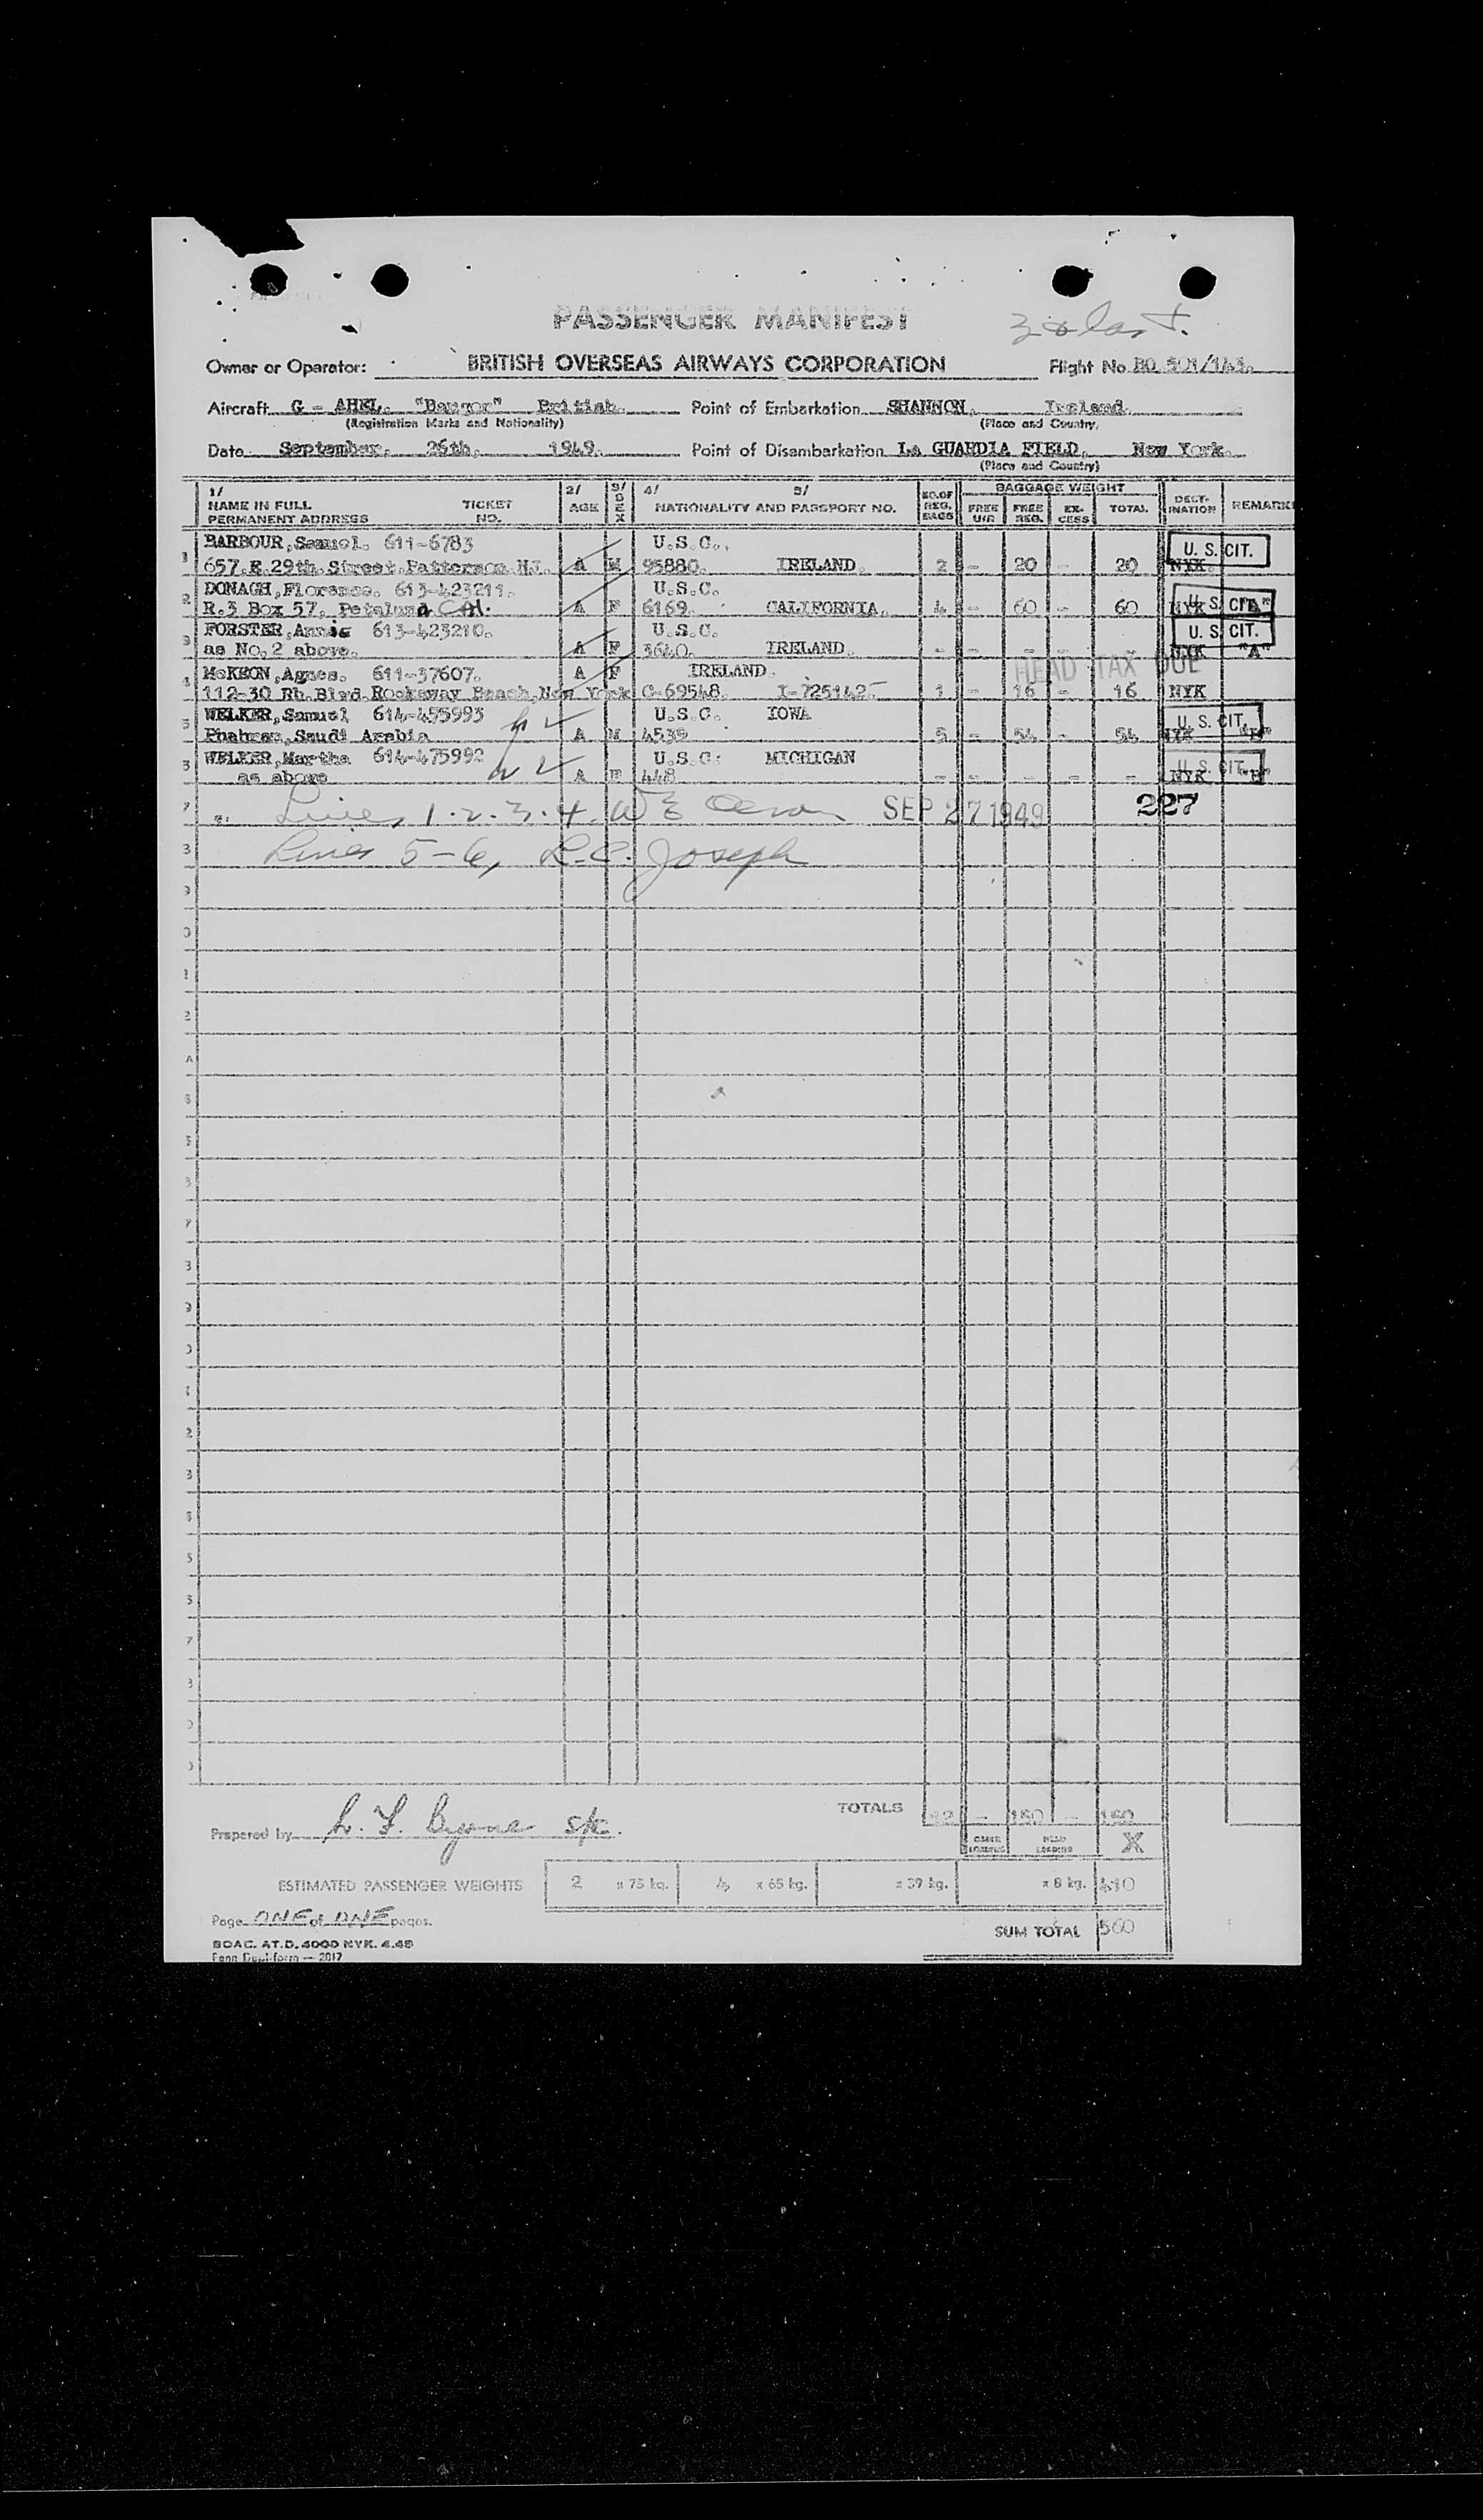 PASSENGER MANIFEST
Owner or Operator: BRITISH OVERSEAS AIRWAYS CORPORATION Flight No BO 501/143.
Aircraft G - AHEL. "Bangor" British. Point of Embarkation SHANNON, Ireland.
(Registration Marks and Nationality) (Place and Country)
Date September, 26th, 1949. Point of Disembarkation LA GUARDIA FIELD, New York.
(Place and Country)
1/ 2/ 3/ 4/ 5/ BAGGAGE WEIGHT
NAME IN FULL TICKET AGE SEX NATIONALITY AND PASSPORT NO. NO. OF REG. BAGS FREE FREE REG. EXCESS TOTAL DESTINATION REMARKS
PERMANENT ADDRESS NO.
BARBOUR, Samuel. 611-6783 U.S.C. U. S. CIT.
1 657.E.29th.Street.Patterson NJ. A M 95880. IRELAND. 2 - 20 - 20 NYK.
DONAGH, Florence. 613-423211. U.S.C. U. S. CIT.
2 R.3 Box 57. Petaluma Cal. A F 6169. CALIFORNIA. 4 - 60 - 60 NYK "A"
FORSTER, Annie 613-423210. U.S.C. U. S. CIT.
3 as No.2 above. A F 3640. IRELAND. - - - - - NYK "A"
McKEON, Agnes. 611-37607. A F IRELAND. HEAD TAX DUE
4 112-30 Rh.Blvd.Rockaway Beach, New York C-69548. I-725142 1 - 16 - 16 NYK
WELKER, Samuel 614-455993 U.S.C. IOWA U. S. CIT.
5 Dhahran, Saudi Arabia A M 4539 5 - 54 - 54 NYK "B"
WELKER, Martha 614-475992 U.S.C. MICHIGAN U. S. CIT.
as above A F 448 - - - - - NYK "B"
7 Lines 1.2.3.4. SEP 27 1949 227
Lines 5-6, L.C. Joseph
TOTALS 12 - 150 - 150
Prepared by L. F. Byrne
X
ESTIMATED PASSENGER WEIGHTS 2 x 75 kg. 4 x 65 kg. x 39 kg. x 8 kg. 410
Page ONE of ONE pages. SUM TOTAL 560
BOAC. AT.D. 4000 NYK. 4.48